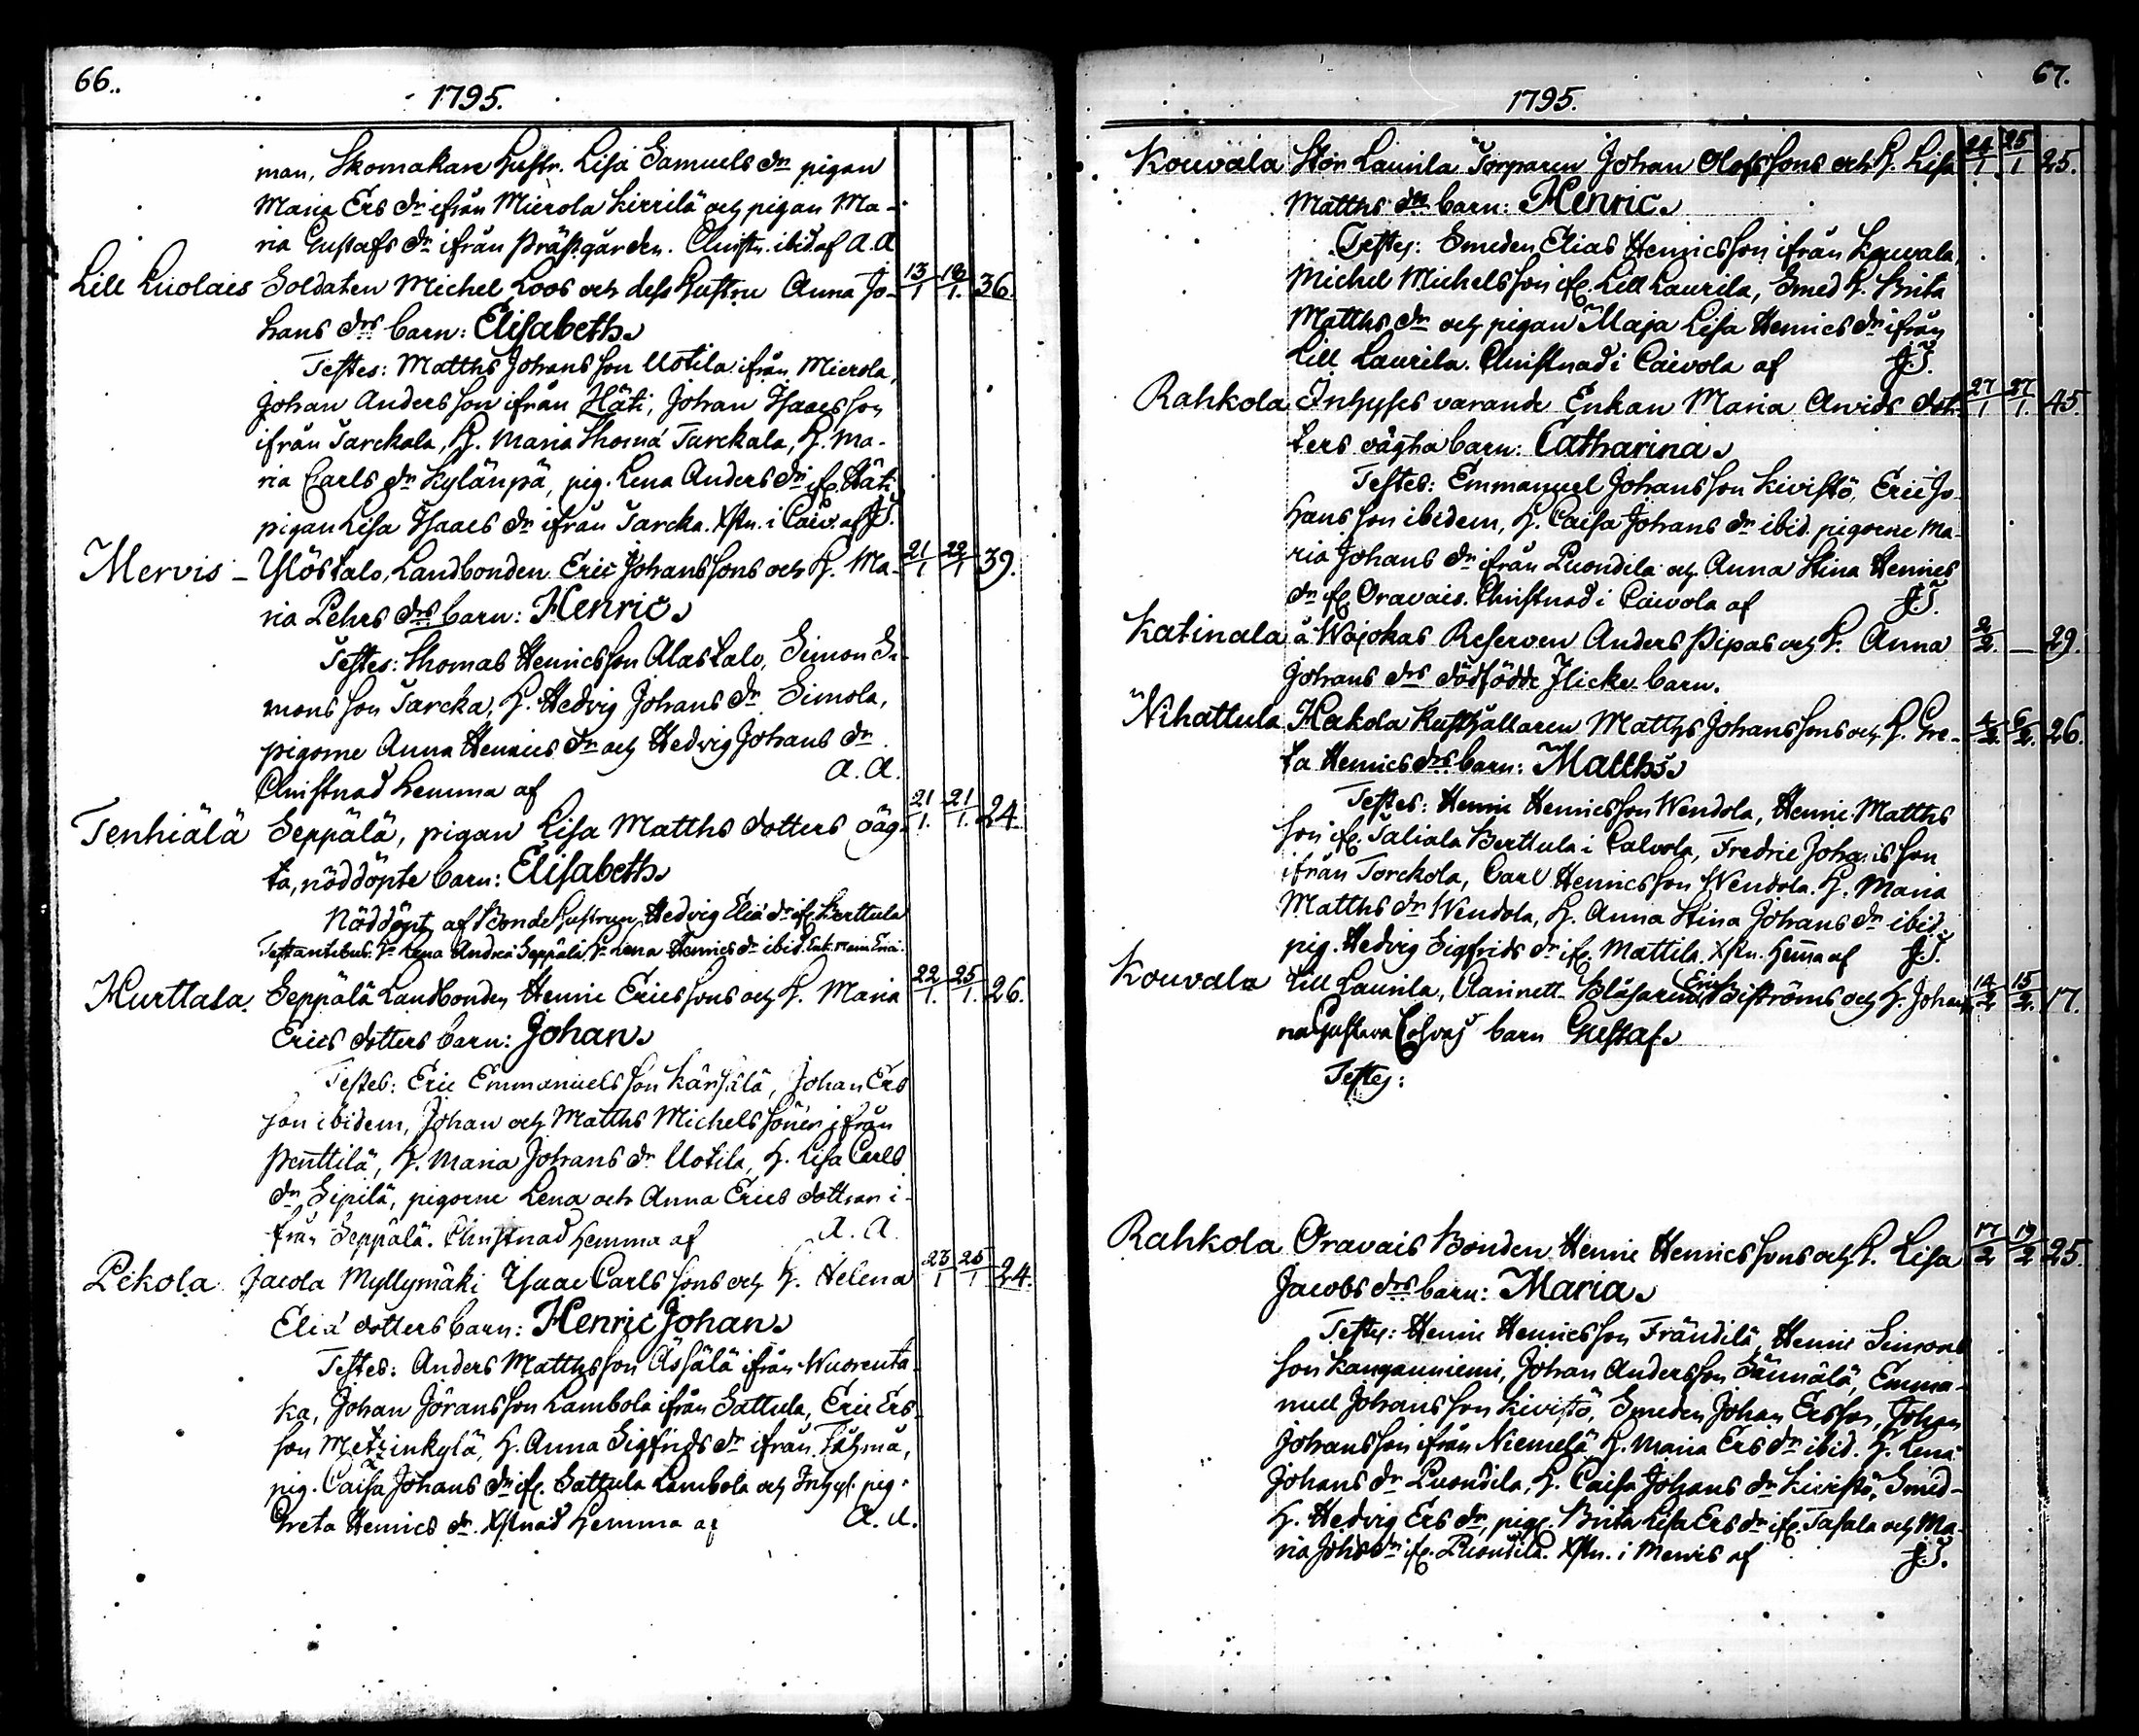 66.
1795.
man, Skomakare hustr. Lisa Samuels dr pigan
Maria Ers dr ifrån Mierola Kirrilä och pigan Ma-
ria Gustafs dr ifrån Prästgården. Christn. ibid. af A. A.
Lill Luolais Soldaten Michel Loos och dess hustru Anna Jo- 13/1 18/1. 36.
hans drs barn: Elisabeth.
Testes: Matths Johansson Uotila ifrån Mierola,
Johan Andersson ifrån Häti, Johan Isaacsson
ifrån Tarckala, H. Maria Thomæ Tarckala, H. Ma-
ria Carls dr Kylänpä, pig. Lena Anders dr if. Häti
pigan Lisa Isaacs dr ifrån Tarcka. Xstn. i Caiv. af J. T.
Mervis - Ylöstalo, Landbonden Eric Johanssons och H. Ma- 21/1 22/1 39.
ria Pehrs drs barn: Henric.
Testes: Thomas Henricsson Alastalo, Simon Si-
monsson Tarcka, H. Hedvig Johans dr Simola,
pigorne Anna Henrics dr och Hedvig Johans dr
Christnad hemma af A. A.
Tenhiälä Seppälä, pigan Lisa Matths dotters oäg- 21/1. 21/1. 24.
ta, nöddöpte barn: Elisabeth.
Nöddöpt af Bonde hustrun Hedvig Eliæ dr if. Kerttula
Testantibus: H. Lena Andreæ Seppälä, H. Lena Henrics dr ibid. Enk. Maria Erici.
Hurttala. Seppälä Landbonden Henric Ericssons och H. Maria 22/1. 25/1. 26.
Erics dotters barn: Johan.
Testes: Eric Emmanuelsson Kärsälä, Johan Ers
son ibidem, Johan och Matths Michelssöner ifrån
Penttilä, H. Maria Johans dr Uotila, H. Lisa Carls
dr Sipilä, pigorne Lena och Anna Erics döttrar i-
från Seppälä. Christnad hemma af A. A.
Pekola Jacola Myllymäki Isaac Carlssons och H. Helena 23/1 25/1 24.
Eliæ dotters barn: Henric Johan.
Testes: Anders Matthsson Ässälä ifrån Wuorenta-
ka, Johan Göransson Lambola ifrån Sattula, Eric Ers-
son Metzinkylä, H. Anna Sigfrids dr ifrån
pig. Caisa Johans dr if. Sattula Lambola och Inhys: pig.
Greta Henrics dr. Xstnad hemma af A. A.
67.
1795.
Kouvala Stor Laurila Torparen Johan Olofssons och H. Lisa 24/1 25/1 25.
Matths drs barn: Henric.
Testes: Smeden Elias Henricsson ifrån Kouvala,
Michel Michelsson if. Lill Laurila, Smed H. Brita
Matths dr och pigan Maja Lisa Henrics dr ifrån
Lill Laurila. Christnad i Caivola af J. T.
Rahkola Inhyses varande Enkan Maria Arvids dot- 27/1 27/1. 45.
ters oägta barn: Catharina.
Testes: Emmanuel Johansson Kivistö, Eric Jo-
hansson ibidem, H. Caisa Johans dr ibid. pigorne Ma-
ria Johans dr ifrån Puondila och Anna Stina Henrics
dr if. Oravais. Christnad i Caivola af J. T.
Katinala å Wojokas Reserven Anders Pipas och H. Anna 2/2. - 29.
Johans drs dödfödde flicke barn.
Nihattula Hakola Rusthållaren Matths Johanssons och H. Gre- 4/2. 6/2. 26.
ta Henrics drs barn: Matths.
Testes: Henric Henricsson Wendola, Henric Matths
son if. Taliala Berttula i Calvola, Fredric Johansson
ifrån Torckola, Carl Henricsson Wendola. H. Maria
Matths dr Wendola, H. Anna Stina Johans dr ibid.
pig. Hedvig Sigfrids dr if. Mattila. Xstn. hemma af J. T.
Kouvola Lill Laurila, Clarinett-Blåsarens Erich Biströms och H. Johan- 14/2 15/2. 17.
na Gustava barn Gustaf.
Testes:
Rahkola Oravais Bonden Henric Henricssons och H. Lisa 17/2 19/2 25.
Jacobs drs barn: Maria.
Testes: Henric Henricsson Frändilä, Henric Simons
son Kanganniemi, Johan Andersson Sännälä, Emma-
nuel Johansson Kivistö, Smeden Johan Ersson, Johan
Johansson ifrån Niemelä H. Maria Ers dr ibid. H. Lena
Johans dr Puondila, H. Caisa Johans dr Kivistö, Smed-
H. Hedvig Ers dr, pig. Brita Lisa Ers dr if. Tasala och Ma-
ria Johs dr if. Puondila. Xstn. i Mervis af J. T.